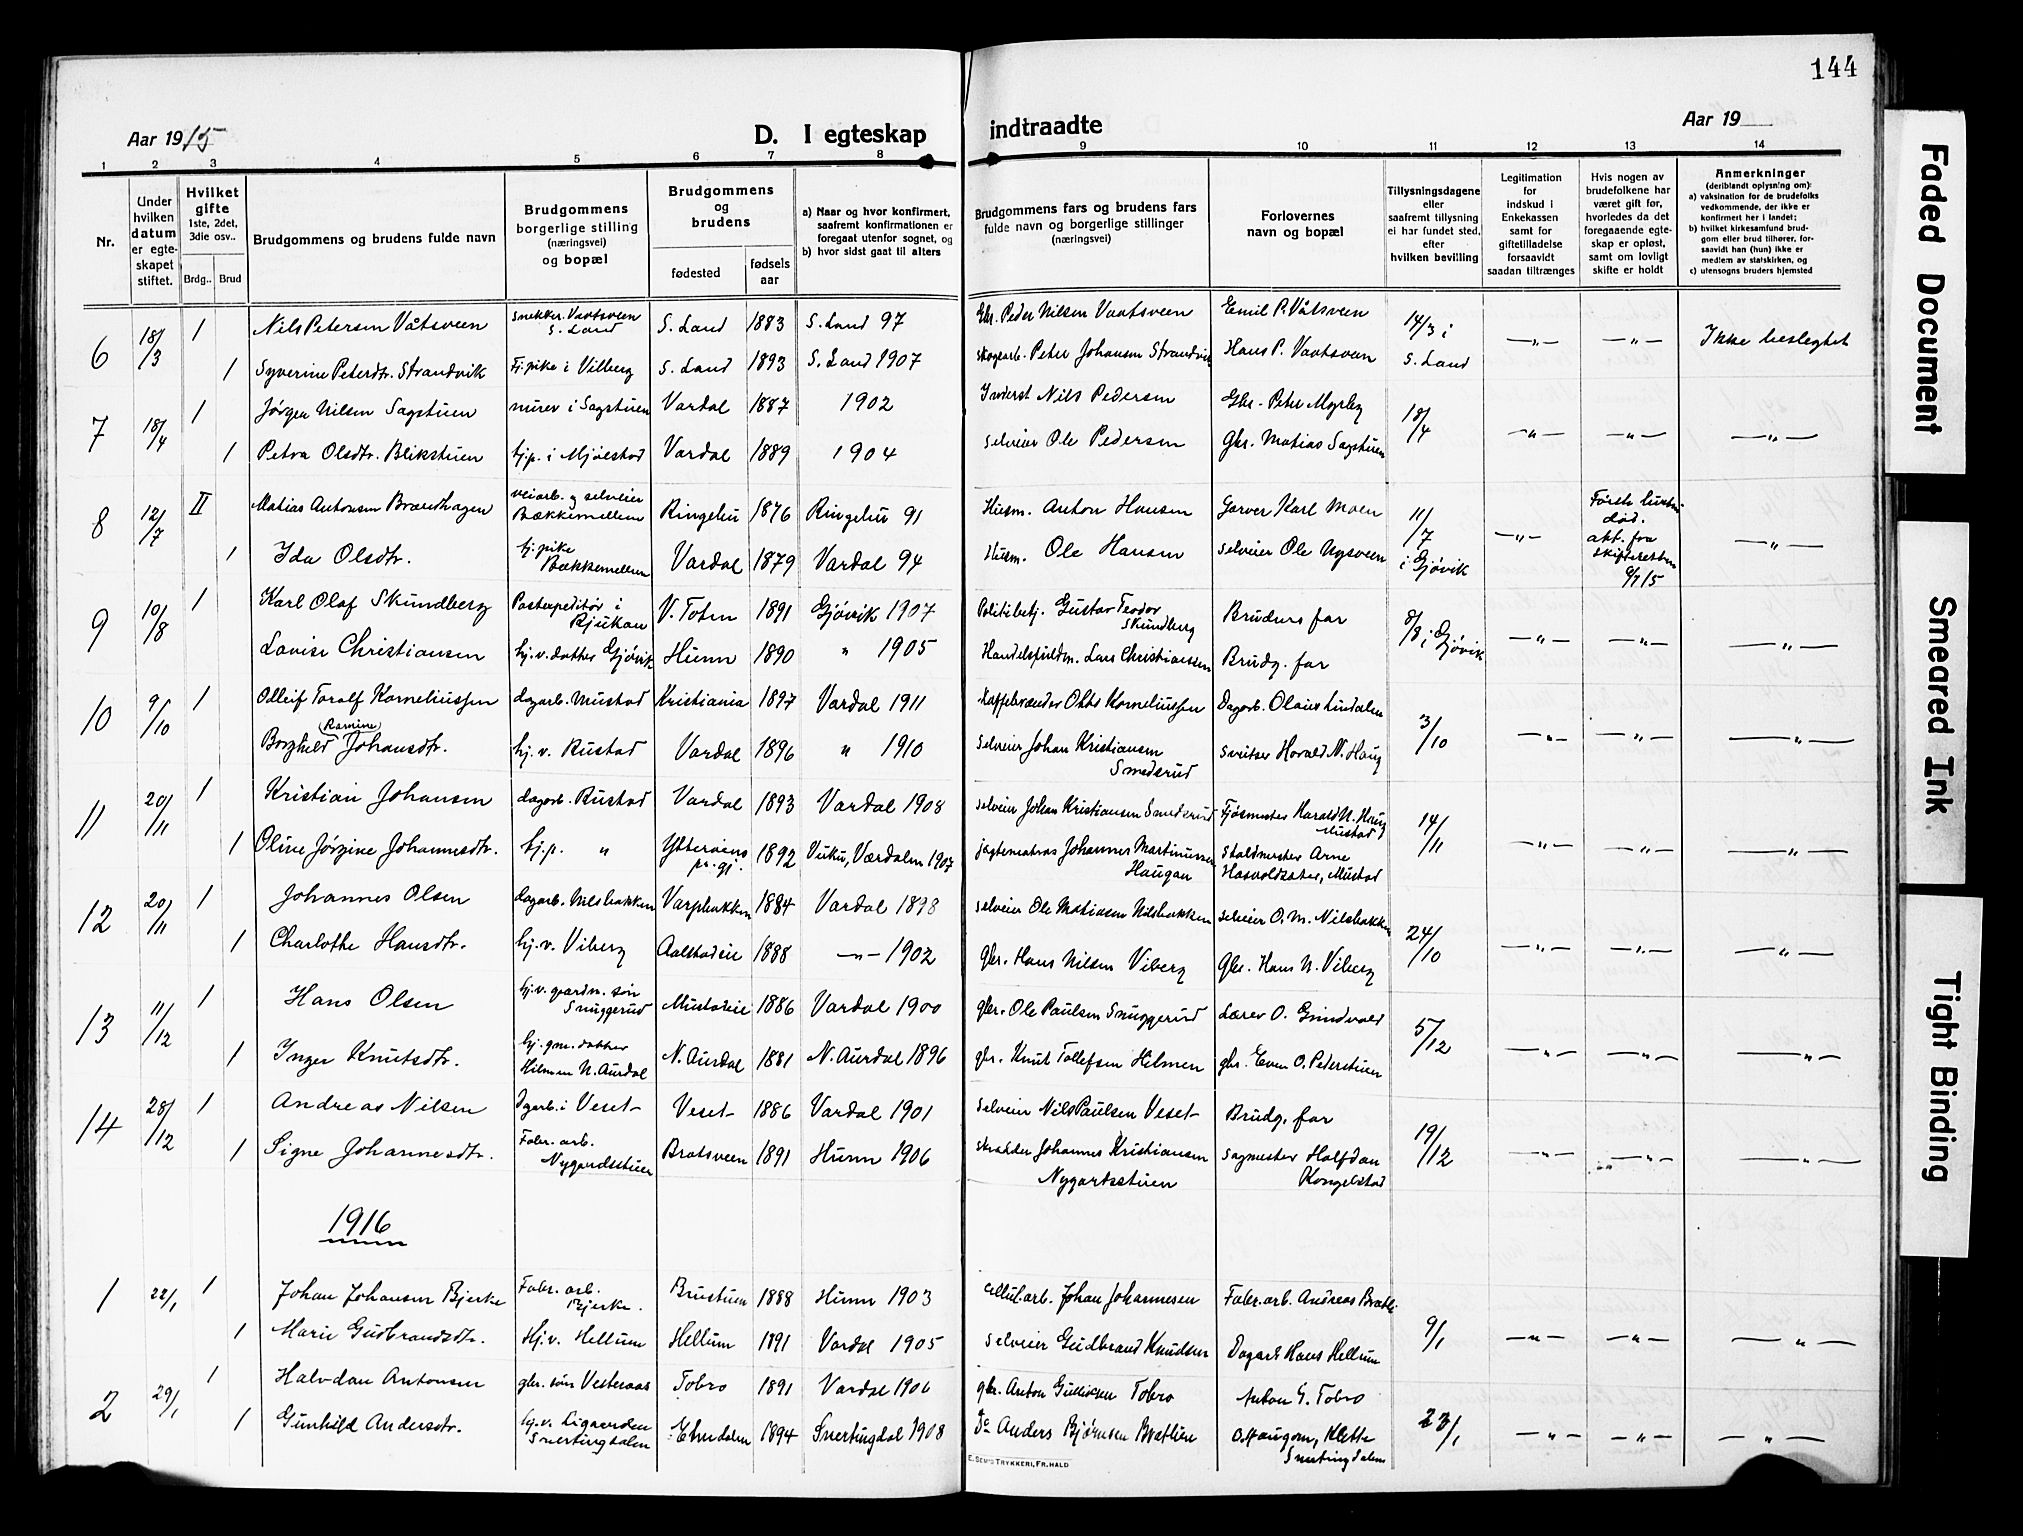 144
Aar 1915
D. I egteskap indtraadte
Aar 19
1 2 3 4 5 6 7 8 9 10 11 12 13 14
Nr.
Under hvilken datum er egteskapet stiftet.
Hvilket gifte 1ste, 2det, 3die osv..
Brdg.. Brud
Brudgommens og brudens fulde navn
Brudgommens borgerlige stilling (næringsvei) og bopæl
Brudgommens og brudens
fødested
fødsels aar
a) Naar og hvor konfirmert, saafremt konfirmationen er foregaat utenfor sognet, og
b) hvor sidst gaat til alters
Brudgommens fars og brudens fars fulde navn og borgerlige stillinger (næringsvei)
Forlovernes navn og bopæl
Tillysningsdagene eller saafremt tillysning ei har fundet sted, efter hvilken bevilling
Legitimation for indskud i Enkekassen samt for giftetilladelse forsaavidt saadan tiltrænges
Hvis nogen av brudefolkene har været gift før, hvorledes da det foregaaende egteskap er opløst, samt om lovligt skifte er holdt
Anmerkninger (deriblandt oplysning om):
a) vaksination for de brudefolks vedkommende, der ikke er konfirmert her i landet;
b) hvilket kirkesamfund brudgom eller brud tilhører, forsaavidt han (hun) ikke er medlem av statskirken, og
c) utensogns bruders hjemsted
6 18/3 1 Nils Petersen Våtsveen snekker Vaatsveen S. Land S. Land 1883 S. Land 97 Gbr. Peder Nilsen Vaatsveen Emil P. Våtsveen 14/3 i S. Land —„— —„— Ikke beslegtet
1 Syverine Petersdtr. Strandvik Tj.pike i Vilberg S. Land 1893 S. Land 1907 skogsarb. Peter Johansen Strandvik Hans P. Vaatsveen
7 18/4 1 Jørgen Nilsen Sagstuen murer i Sagstuen Vardal 1887 1902 Inderst Nils Pedersen Gbr. Peter Myrby 18/4 —„— —„— —„—
1 Petra Olsdtr. Blikstuen tj.p. i Mjølstad Vardal 1889 1904 selveier Ole Pedersen Gbr. Matias Sagstuen
8 12/7 II Matias Antonsen Brændhagen veiarb. og selveier Bækkemellem Ringebu 1876 Ringebu 91 Husm. Anton Hansen Garver Karl Moen 11/7 i Gjøvik —„— Første hustru død. akt. fra skifteretten 9/7 15 —„—
1 Ida Olsdtr. tj.pike Bækkemellem Vardal 1879 Vardal 94 Husm. Ole Hansen selveier Ole Nysveen
9 10/8 1 Karl Olaf Skundberg Postexpeditør i Rjukan V. Toten 1891 Gjøvik 1907 Politibetj. Gustav Teodor Skundberg Brudens far 8/8 i Gjøvik —„— —„— —„—
1 Lovise Christiansen hj.v. datter Gjøvik Hunn 1890 „ 1905 Handelsfuldm. Lars Christiansen Brudg. far
10 9/10 1 Olleif Toralf Korneliussen dagarb. Mustad Kristiania 1897 Vardal 1911 kaffebrænder Otto Korneliussen Dagarb. Olaus Lundalen 3/10 —„— —„— —„—
1 Borghild (Ramine) Johansdtr. hj. v. Rustad Vardal 1896 „ 1910 selveier Johan Kristiansen Smedsrud sveitser Harald N. Haug
11 20/11 1 Kristian Johansen dagarb. Rustad Vardal 1893 Vardal 1908 selveier Johan Kristiansen Smedsrud Fjøsmester Harald N. Haug Mustad 14/11 —„— —„— —„—
1 Oline Jørgine Johannesdtr. tj.p. „ Ytterøens pr.gj. 1892 Vuku, Værdalen 1907 Johannes Martinussen Haugan Staldmester Arne Hasvoldsæter, Mustad
12 20/11 1 Johannes Olsen dagarb. Nilsbakken Varpbakken 1884 Vardal 1898 selveier Ole Matiasen Nilsbakken selveier O. M. Nilsbakken 24/10 —„— —„— —„—
1 Charlotte Hansdtr. hj. v. Viberg Aalstadeie 1888 —„— 1902 gbr. Hans Nilsen Viberg gbr. Hans N. Viberg
13 11/12 1 Hans Olsen hj.v. gaardm. søn Snuggerud Mustadeie 1886 Vardal 1900 gbr. Ole Paulsen Snuggerud Lærer O. Grindvold 5/12 —„— —„— —„—
1 Inger Knutsdtr. hj. gm. datter Hilmen N. Aurdal N. Aurdal 1881 N. Aurdal 1896 gbr. Knut Tollefsen Hilmen gbr. Even O. Pederstuen
14 28/12 1 Andreas Nilsen Dgarb. i Veset Veset 1886 Vardal 1901 selveier Nils Paulsen Veset Brudg. far 19/12 —„— —„— —„—
1 Signe Johannesdtr. Fabr. arb. Nygardsstuen Bratsveen 1891 Hunn 1906 skrædder Johannes Kristiansen Nygardsstuen sagmester Halfdan Kongelstad
1916
1 22/1 1 Johan Johansen Bjerke Fabr. arb. Bjerke. Brustuen 1888 Hunn 1903 cellul.arb. Johan Johannesen Fabr.arb. Andreas Bratli 9/1 —„— —„— —„—
1 Marie Gudbrandsdtr. Hj.v. Hellum Hellum 1891 Vardal 1905 selveier Gudbrand Knudsen Dagarb Hans Hellum
2 29/1 1 Halvdan Antonsen gbr. søn Vesteraas Tobro 1891 Vardal 1906 gbr. Anton Gulliksen Tobro Anton G. Tobro 23/1 —„— —„— —„—
1 Gunhild Andersdtr. hj.v. Snertingdalen Etnedalen 1894 Snertingdal 1908 Do Anders Bjørnsen Bratlien O. Haugom, Klette Snertingdalen
E. SEM'S TRYKKERI, FR.HALD
Faded Document
Smeared Ink
Tight Binding